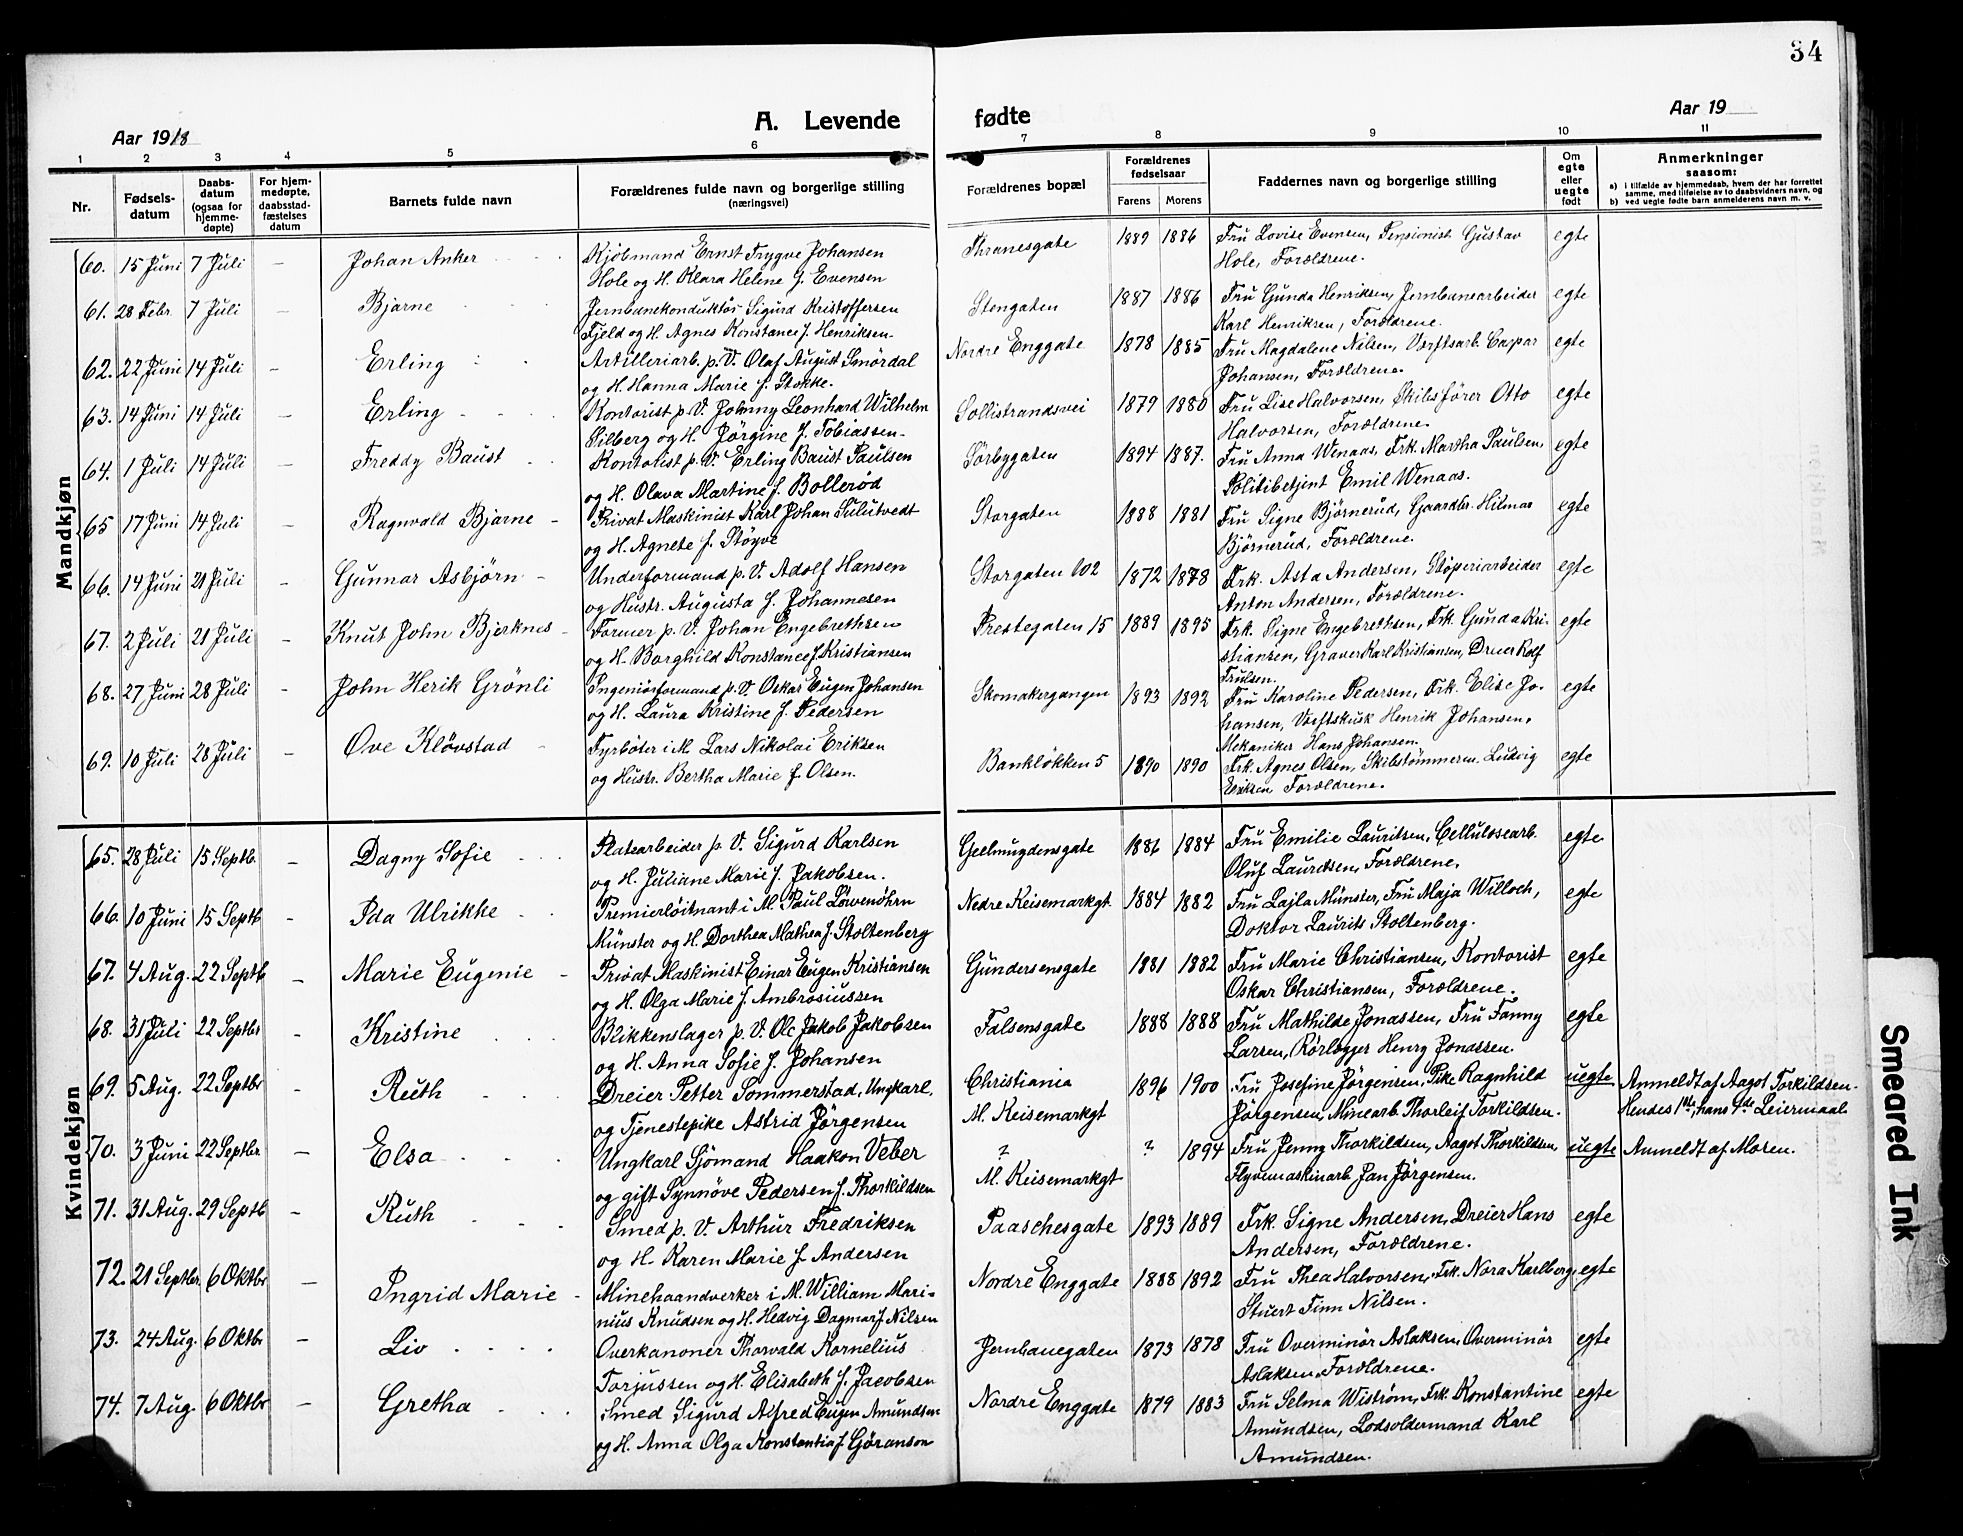 34
Aar 1918
A. Levende fødte
Aar 19
1 2 3 4 5 6 7 8 9 10 11
Nr.
Fødsels-datum
Daabs-datum (ogsaa for hjemme-døpte)
For hjem-medøpte, daabsstad-fæstelses datum
Barnets fulde navn
Forældrenes fulde navn og borgerlige stilling (næringsvei)
Forældrenes bopæl
Forældrenes fødselsaar
Farens Morens
Faddernes navn og borgerlige stilling
Om egte eller uegte født
Anmerkninger saasom:
a) i tilfælde av hjemmedaab, hvem der har forrettet samme, med tilføielse av to daabsvidners navn, og
b) ved uegte fødte barn anmelderens navn m. v.
Mandkjøn
60. 15 Juni 7 Juli – Johan Anker Kjöbmand Ernst Trygve Johansen Thranesgate 1889 1886 Fru Lovise Evensen, Pensionist Gustav egte
Hole og H. Klara Helene f. Evensen Hole, Forældrene.
61. 28 Febr. 7 Juli – Bjarne Jernbanekonduktör Sigurd Kristoffersen Stengaten 1887 1886 Fru Gunda Henriksen, Jernbanearbeider egte
Fjeld og H. Agnes Konstance f. Henriksen. Karl Henriksen, Forældrene.
62. 22 Juni 14 Juli – Erling Artilleriarb. p. V. Olaf August Smördal Nordre Enggate 1878 1885 Fru Magdalene Nilsen, Værftsarb. Caspar egte
og H. Hanna Marie f. Stokke. Johansen, Forældrene.
63. 14 Juni 14 Juli – Erling Kontorist p. V. Johnny Leonhard Wilhelm Sollistrandsvei 1879 1880 Fru Lise Halvorsen, Skibsfører Otto egte
Silberg og H. Jörgine f. Tobiassen. Halvorsen, Forældrene.
64. 1 Juli 14 Juli – Freddy Baust Kontorist p. V. Erling Baust Paulsen Sörbygaten 1894 1887. Fru Anna Wenaas, Frk. Martha Paulsen, egte
og H. Olava Martine f. Bollerød Politibetjent Emil Wenaas.
65 17 Juni 14 Juli – Ragnvald Bjarne Privat Maskinist Karl Johan Sulutvedt Storgaten 1888 1881 Fru Signe Björnerud, Gaardbr. Hilmar egte
og H. Agnete f. Stöyve Björnerud, Forældrene.
66. 14 Juni 21 Juli – Gunnar Asbjörn Underformand p. V. Adolf Hansen Storgaten 102 1872 1878 Frk. Asta Andersen, Stöperiarbeider egte
og Hustr. Augusta f. Johannesen Anton Andersen, Forældrene.
67. 2 Juli 21 Juli – Knut John Bjerknes Former p. V. Johan Engebrethsen Prestegaten 15 1889 1895 Frk. Signe Engebrethsen, Frk. Gunda Kri- egte
og H. Borghild Konstance f. Kristiansen stiansen, Graver Karl Kristiansen, Dreier Rolf
Trulsen.
68. 27 Juni 28 Juli – John Herik Grönli Ingeniörformand p. V. Oskar Eugen Johansen Skomakergangen 1893 1892 Fru Karoline Pedersen, Frk. Elise Jo- egte
og H. Laura Kristine f. Pedersen hansen, Værftskusk Henrik Johansen,
Mekaniker Hans Johansen.
69. 10 Juli 28 Juli – Ove Klövstad Fyrböter i M. Lars Nikolai Eriksen Banklökken 5 1890 1890 Frk. Agnes Olsen, Skibstömmerm. Ludvig egte
og Hustr. Bertha Marie f. Olsen. Eriksen Forældrene.
Kvindekjøn
65. 28 Juli 15 Septb. – Dagny Sofie Platearbeider p. V. Sigurd Karlsen Geelmuydensgate 1886 1884 Fru Emilie Lauritsen, Cellulosearb. egte
og H. Juliane Marie f. Jakobsen. Oluf Lauritsen, Forældrene.
66. 10 Juni 15 Septb – Ida Ulrikke Premierløitnant i M. Paul Løvenöhrn Nedre Keisemarkgt. 1884 1882 Fru Lajla Münster, Fru Maja Willoch, egte
Münster og H. Dorthea Mathea f. Stoltenberg Doktor Laurits Stoltenberg.
67. 4 Aug. 22 Septb – Marie Eugenie Privat Maskinist Einar Eugen Kristiansen Gundersensgate 1881 1882 Fru Marie Christiansen, Kontorist egte
og H. Olga Marie f. Ambrosiussen Oskar Christiansen, Forældrene.
68. 31 Juli 22 Septbr – Kristine Blikkenslager p. V. Ole Jakob Jakobsen Falsensgate 1888 1888 Fru Mathilde Jonassen, Fru Fanny egte
og H. Anna Sofie f. Johansen Larsen, Rörlægger Henry Jonassen.
69. 5 Aug. 22 Septbr – Ruth Dreier Petter Sommerstad, Ungkarl, Christiania 1896 1900 Fru Josefine Jörgensen, Pike Ragnhild uegte Anmeldt af Aagot Torkildsen.
og Tjenestepike Astrid Jörgensen M. Keisemarkgt Jörgensen, Minearb. Thorleif Torkildsen. Hendes 1ste, hans 1ste Leiermaal
70. 3 Juni 22 Septbr – Elsa Ungkarl Sjömand Haakon Veber ? ? 1894 Fru Jenny Thorkildsen, Aagot Thorkildsen, uegte Anmeldt af Moren.
og gift Synnöve Pedersen f. Thorkildsen M. Keisemarkgt Flyvemaskinarb. Jan Jörgensen.
71. 31 Aug. 29 Septb – Ruth Smed p. V. Arthur Fredriksen Paaschesgate 1893 1889 Frk. Signe Andersen, Dreier Hans egte
og H. Karen Marie f. Andersen Andersen, Forældrene.
72. 21 Septbr. 6 Oktbr – Ingrid Marie Minehaandverker i M. William Mari- Nordre Enggate 1888 1892 Fru Thea Halvorsen, Frk. Nora Karlberg, egte
nius Knudsen og H. Hedvig Dagmar f. Nilsen Stuert Finn Nilsen.
73. 24 Aug. 6 Oktbr – Liv Overkanoner Thorvald Kornelius Jernbanegaten 1873 1878 Fru Overminör Aslaksen, Overminör egte
Torjussen og H. Elisabeth f. Jacobsen Aslaksen, Forældrene.
74. 7 Aug. 6 Oktbr – Gretha Smed Sigurd Alfred Eugen Amundsen Nordre Enggate 1879 1883 Fru Selma Wiström, Frk. Konstantine egte
og H. Anna Olga Konstantia f. Göranson Amundsen, Lodsoldermand Karl
Amundsen.
Smeared Ink